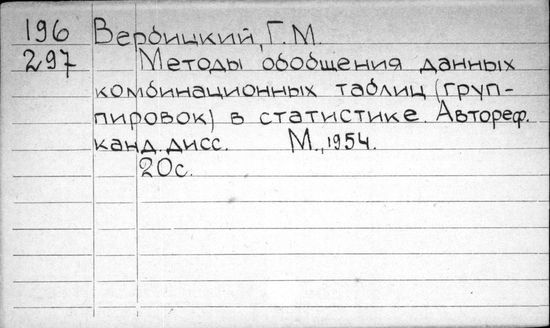 196 Вербицкий, Г.М.
297 Методы обобщения данных
комбинационных таблиц (груп-
пировок) в статистике. Автореф.
канд. дисс. М., 1954.
20с.